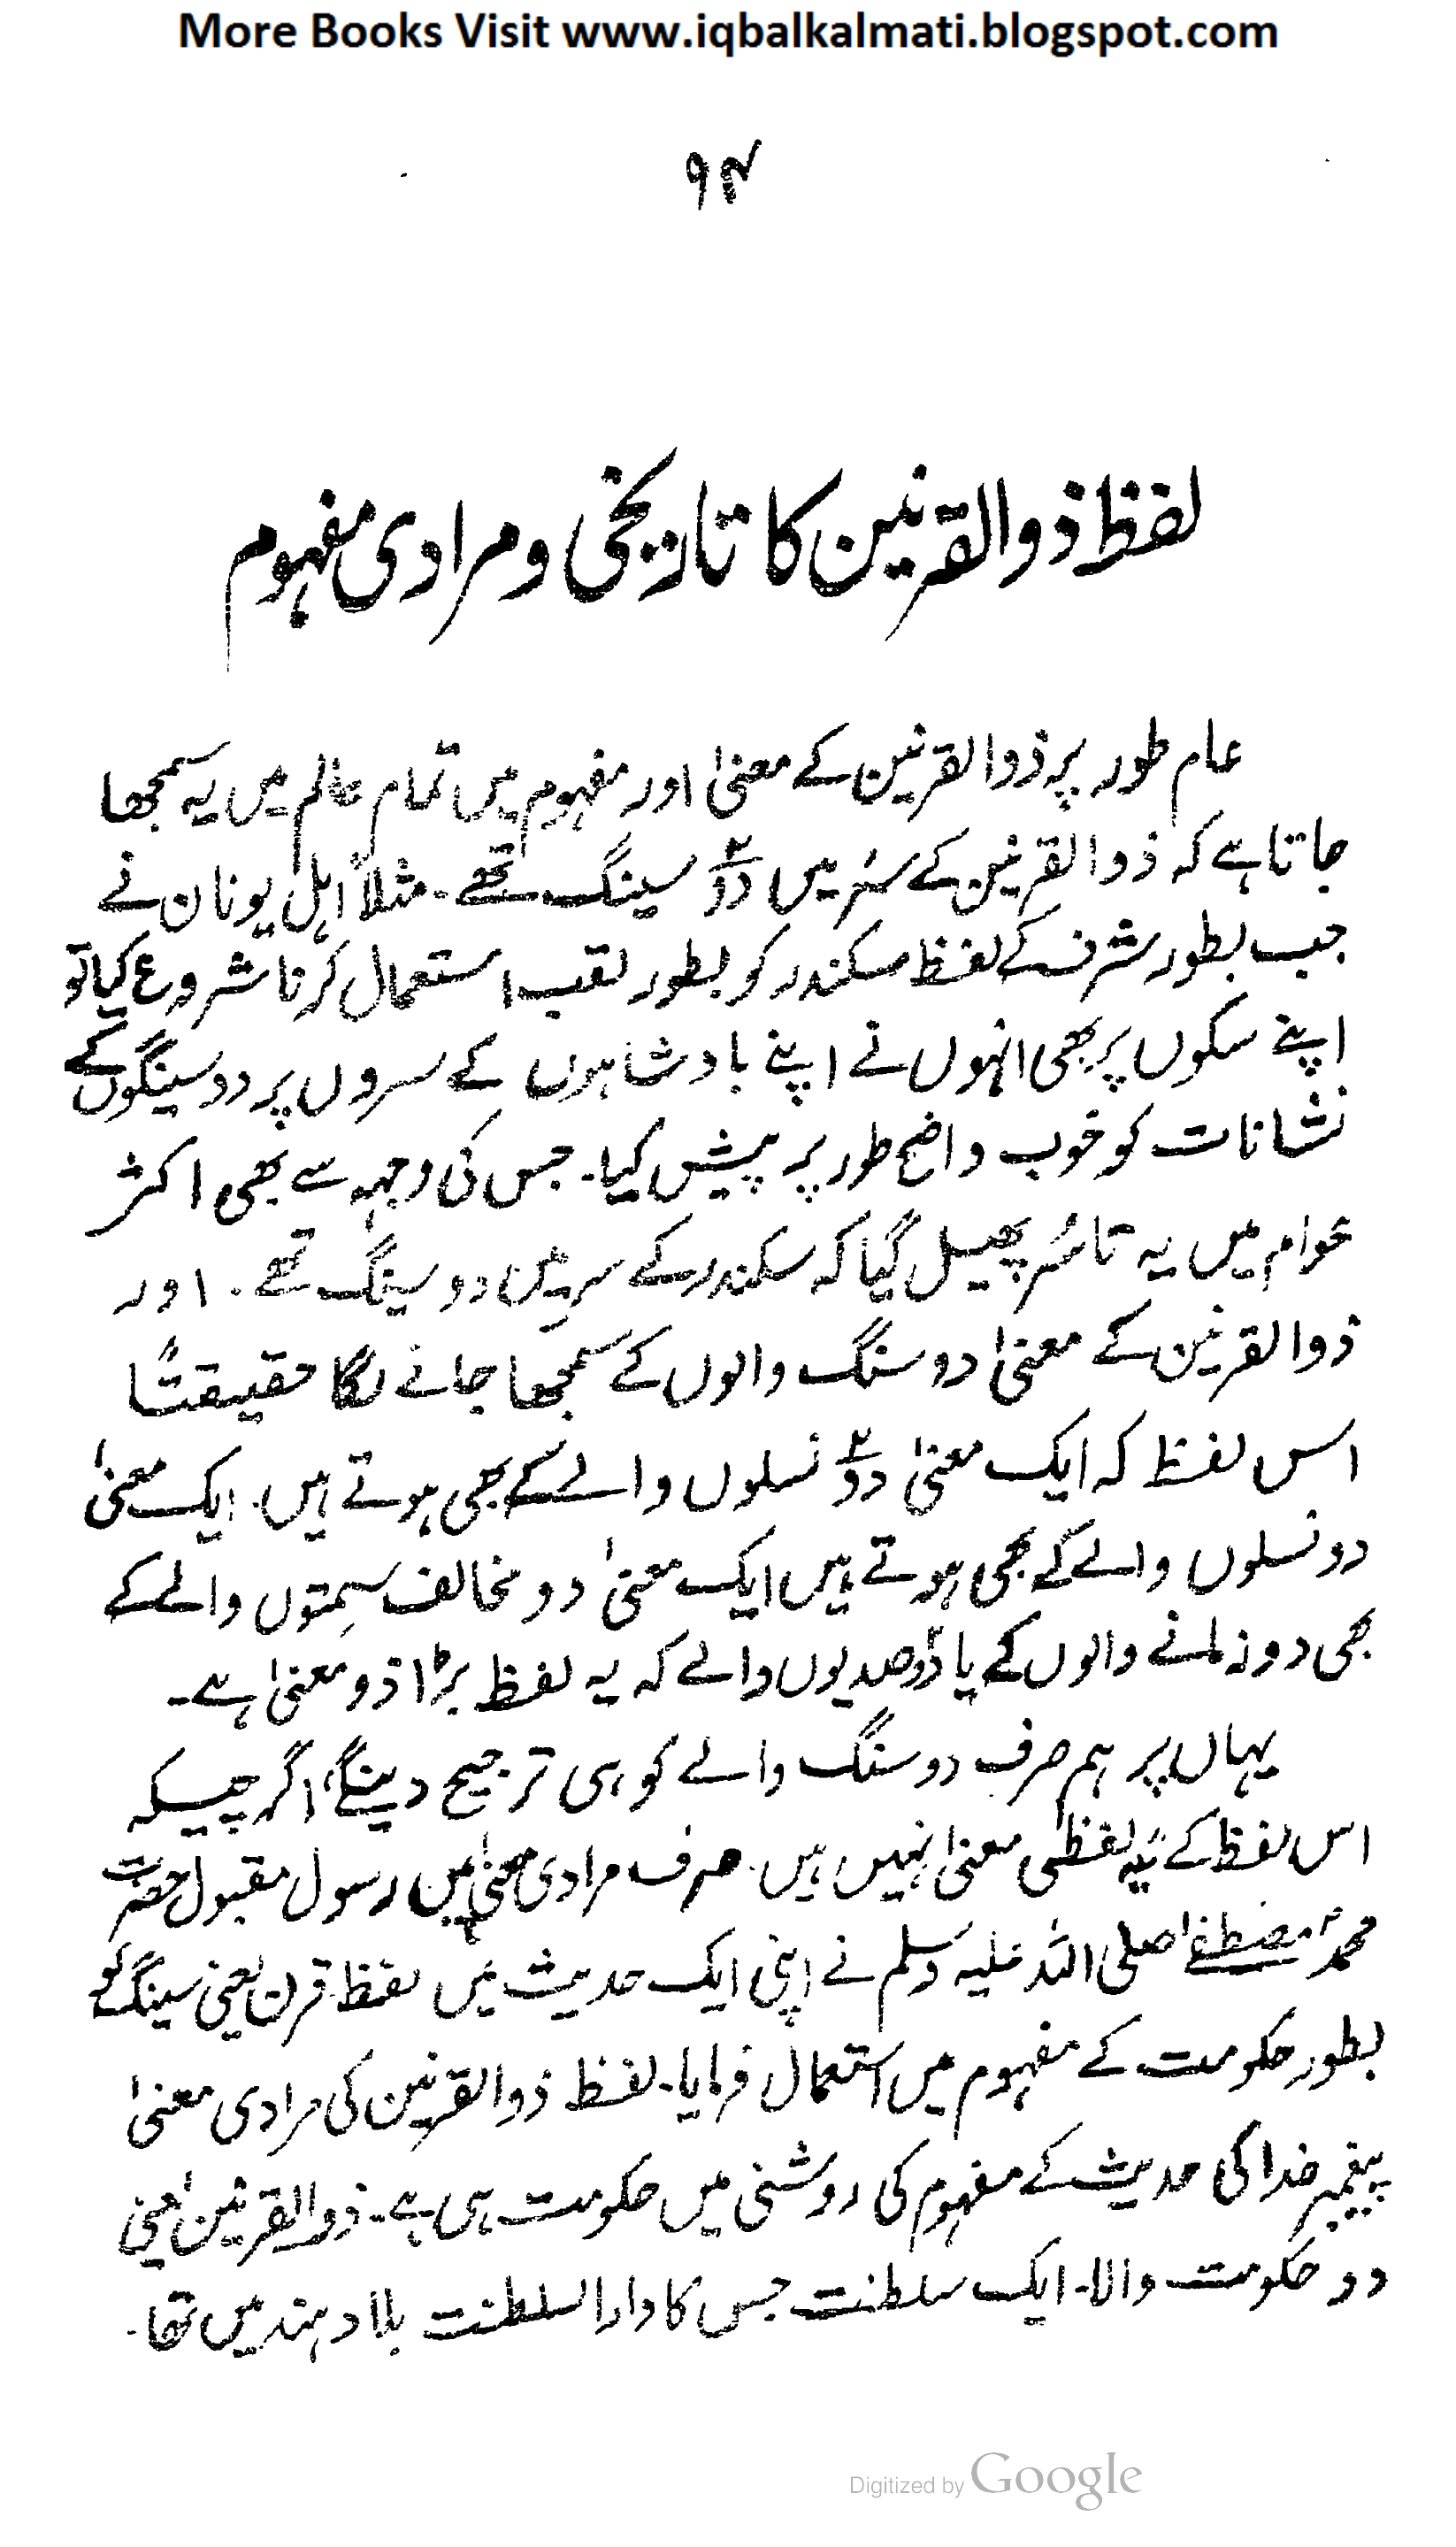 More Books Visit www.iqbalkalmati.blogspot.com
۹۴
لفظ ذوالقرنین کا تاریخی و مرادی مفہوم
عام طور پر ذوالقرنین کے معنیٰ اور مفہوم میں تمام عالم میں یہ سمجھا
جاتا ہے کہ ذوالقرنین کے سر میں دو۲ سینگ تھے۔ مثلاً اہل یونان نے
جب بطور شرف کے لفظ سکندر کو بطور لقب استعمال کرنا شروع کیا تو
اپنے سکوں پر بھی انہوں نے اپنے بادشاہوں کے سروں پر دو سینگوں کے
نشانات کو خوب واضح طور پر پیش کیا۔ جس کی وجہہ سے بھی اکثر
عوام میں یہ تاثر پھیل گیا کہ سکندر کے سر میں دو سینگ تھے۔ اور
ذوالقرنین کے معنیٰ دو سنگ والوں کے سمجھا جانے لگا حقیقتاً
اس لفظ کہ ایک معنیٰ دو۲ نسلوں والے کے بھی ہوتے ہیں۔ ایک معنیٰ
دو نسلوں والے کے بھی ہوتے ہیں ایک معنیٰ دو مخالف سمتوں والے کے
بھی دو زمانے والوں کے یا دو صدیوں والے کہ یہ لفظ بڑا ذو معنیٰ ہے۔
یہاں پر ہم صرف دو سنگ والے کو ہی ترجیح دینگے، اگرچیکہ
اس لفظ کے یہ لفظی معنیٰ نہیں ہیں۔ صرف مرادی معنیٰ ہیں رسول مقبول حضرت
محمدؐ مصطفےٰ صلی اللہ علیہ وسلم نے اپنی ایک حدیث میں لفظ قرن یعنی سینگ کو
بطور حکومت کے مفہوم میں استعمال فرمایا۔ لفظ ذوالقرنین کی مرادی معنیٰ
پیغمبر خدا کی حدیث کے مفہوم کی روشنی میں حکومت ہی ہے۔ ذوالقرنین یعنی
دو حکومت والا۔ ایک سلطنت جس کا دارالسلطنت بلاد ہند میں تھا۔
Digitized by Google